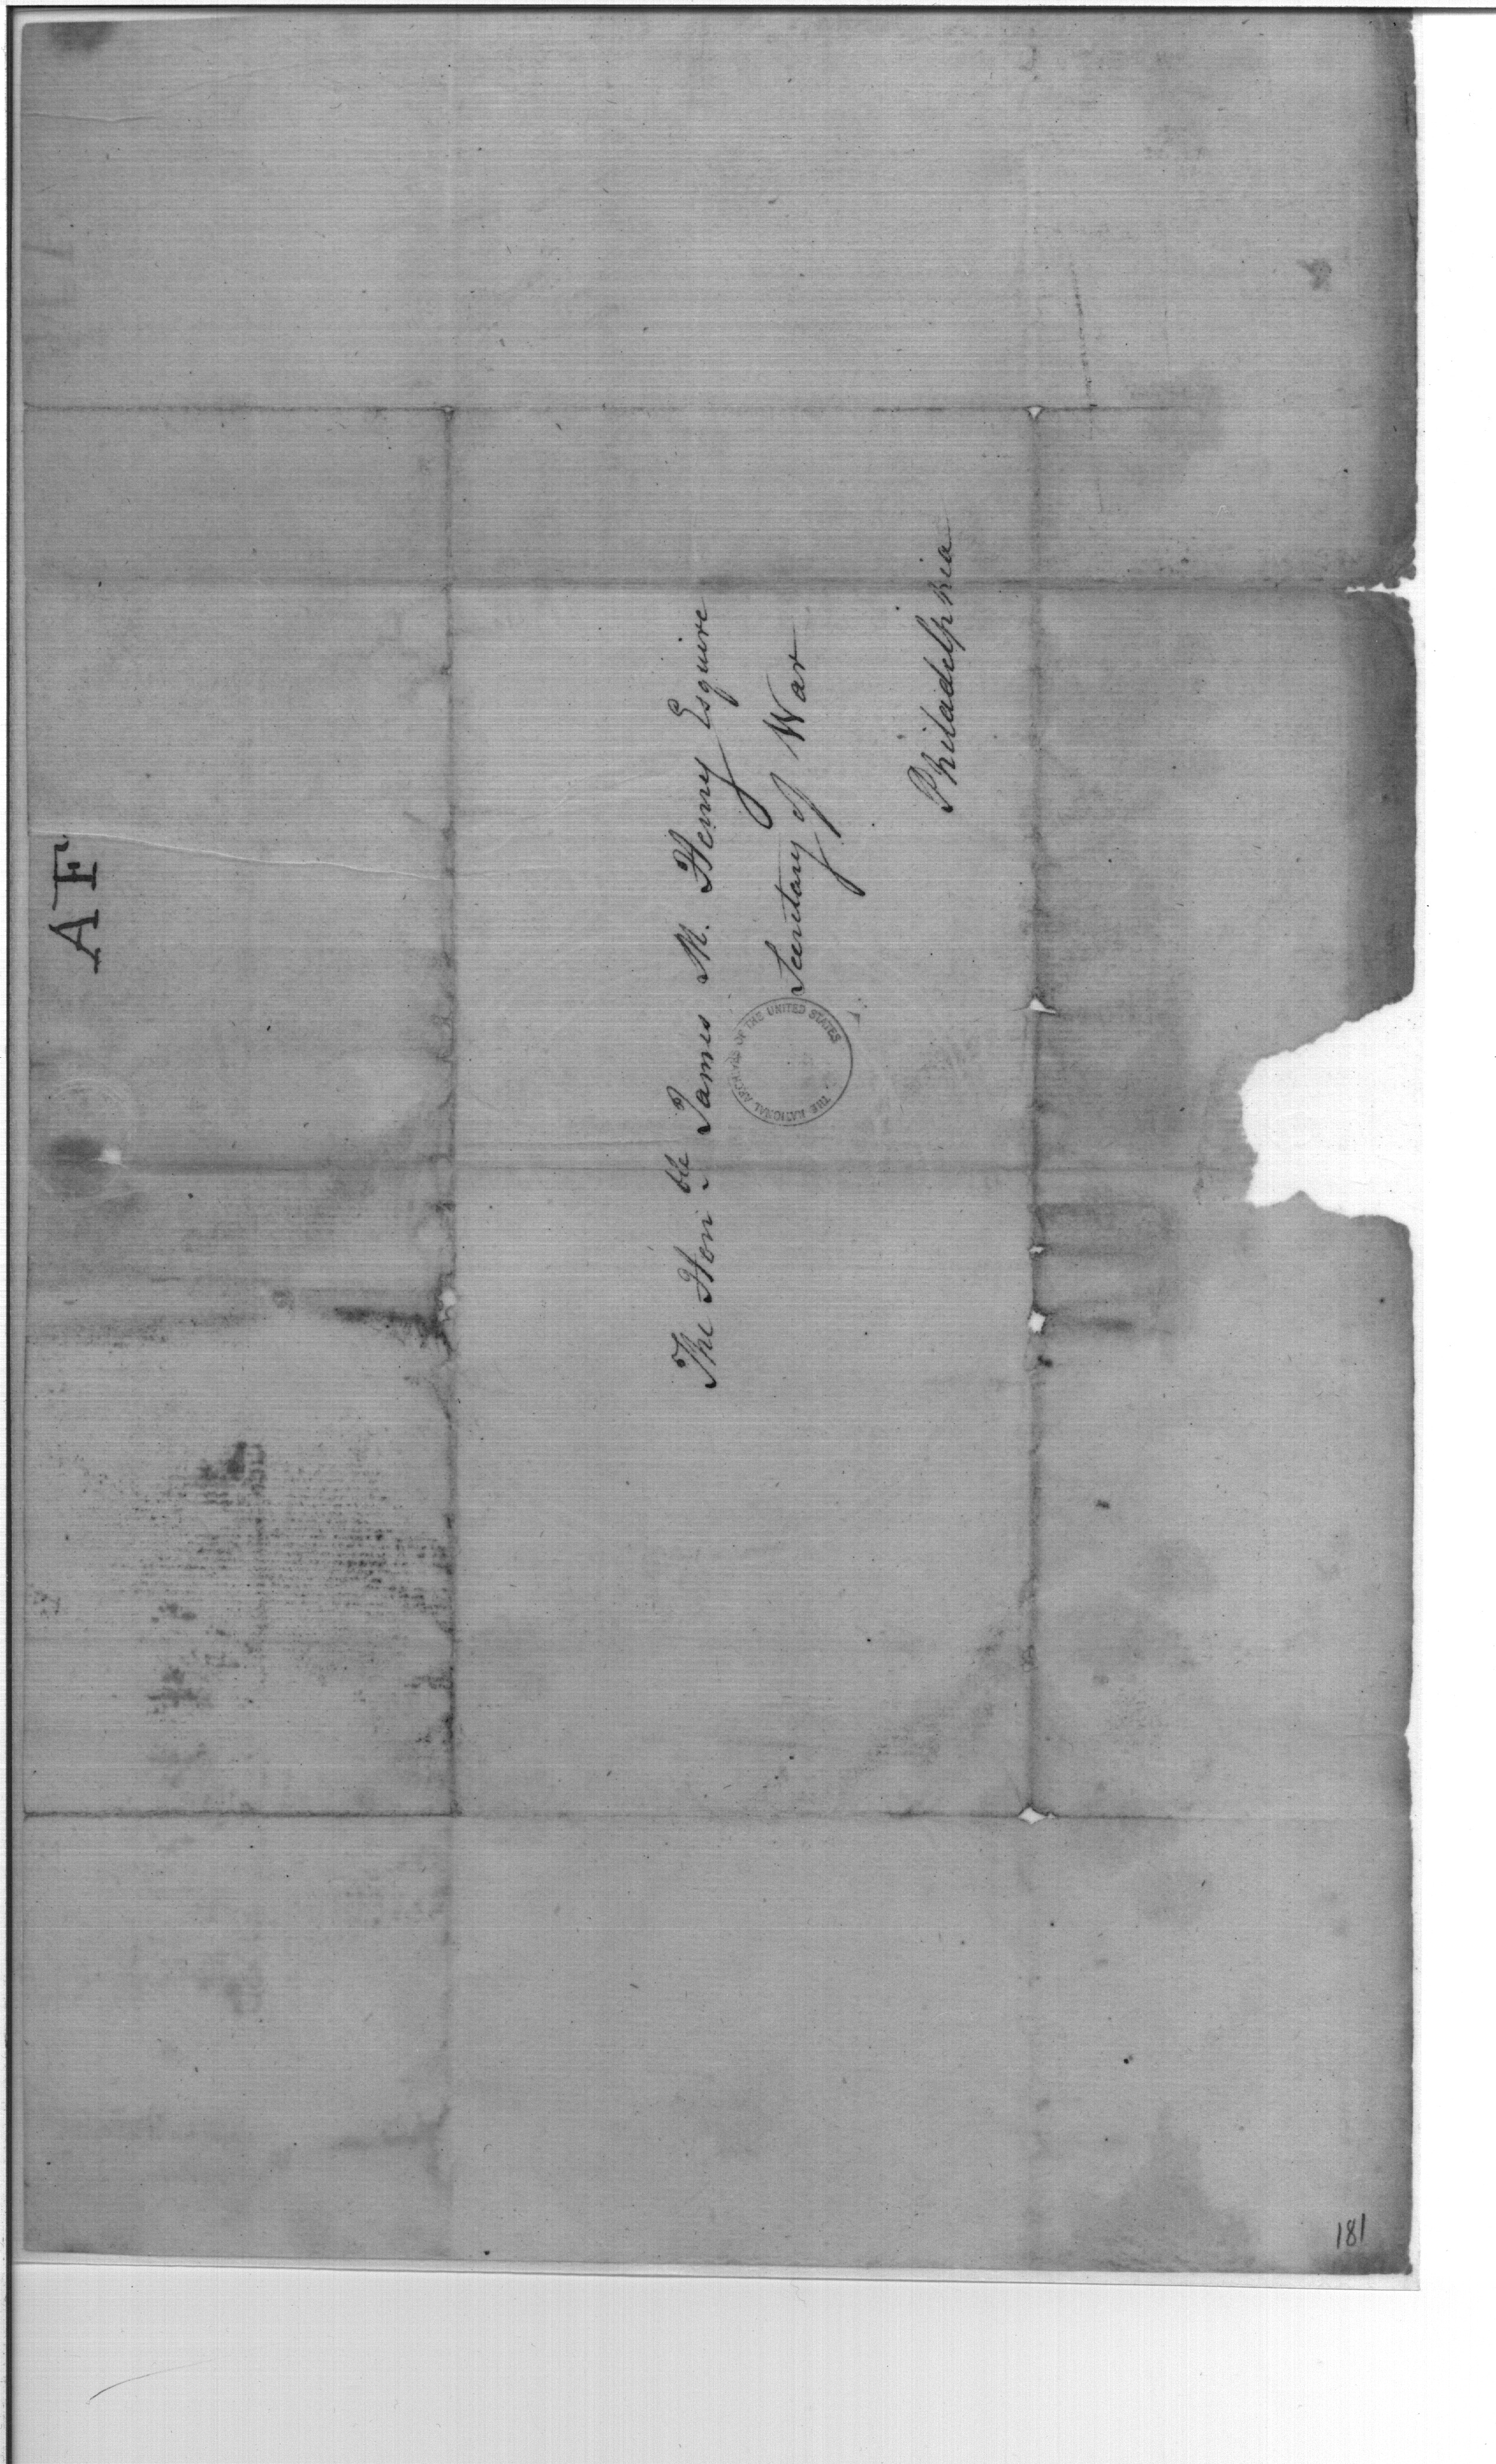 AF
The Hon ble James M. Henry Esquire
Secretary of War
Philadelphia
THE NATIONAL ARCHIVES OF THE UNITED STATES
181